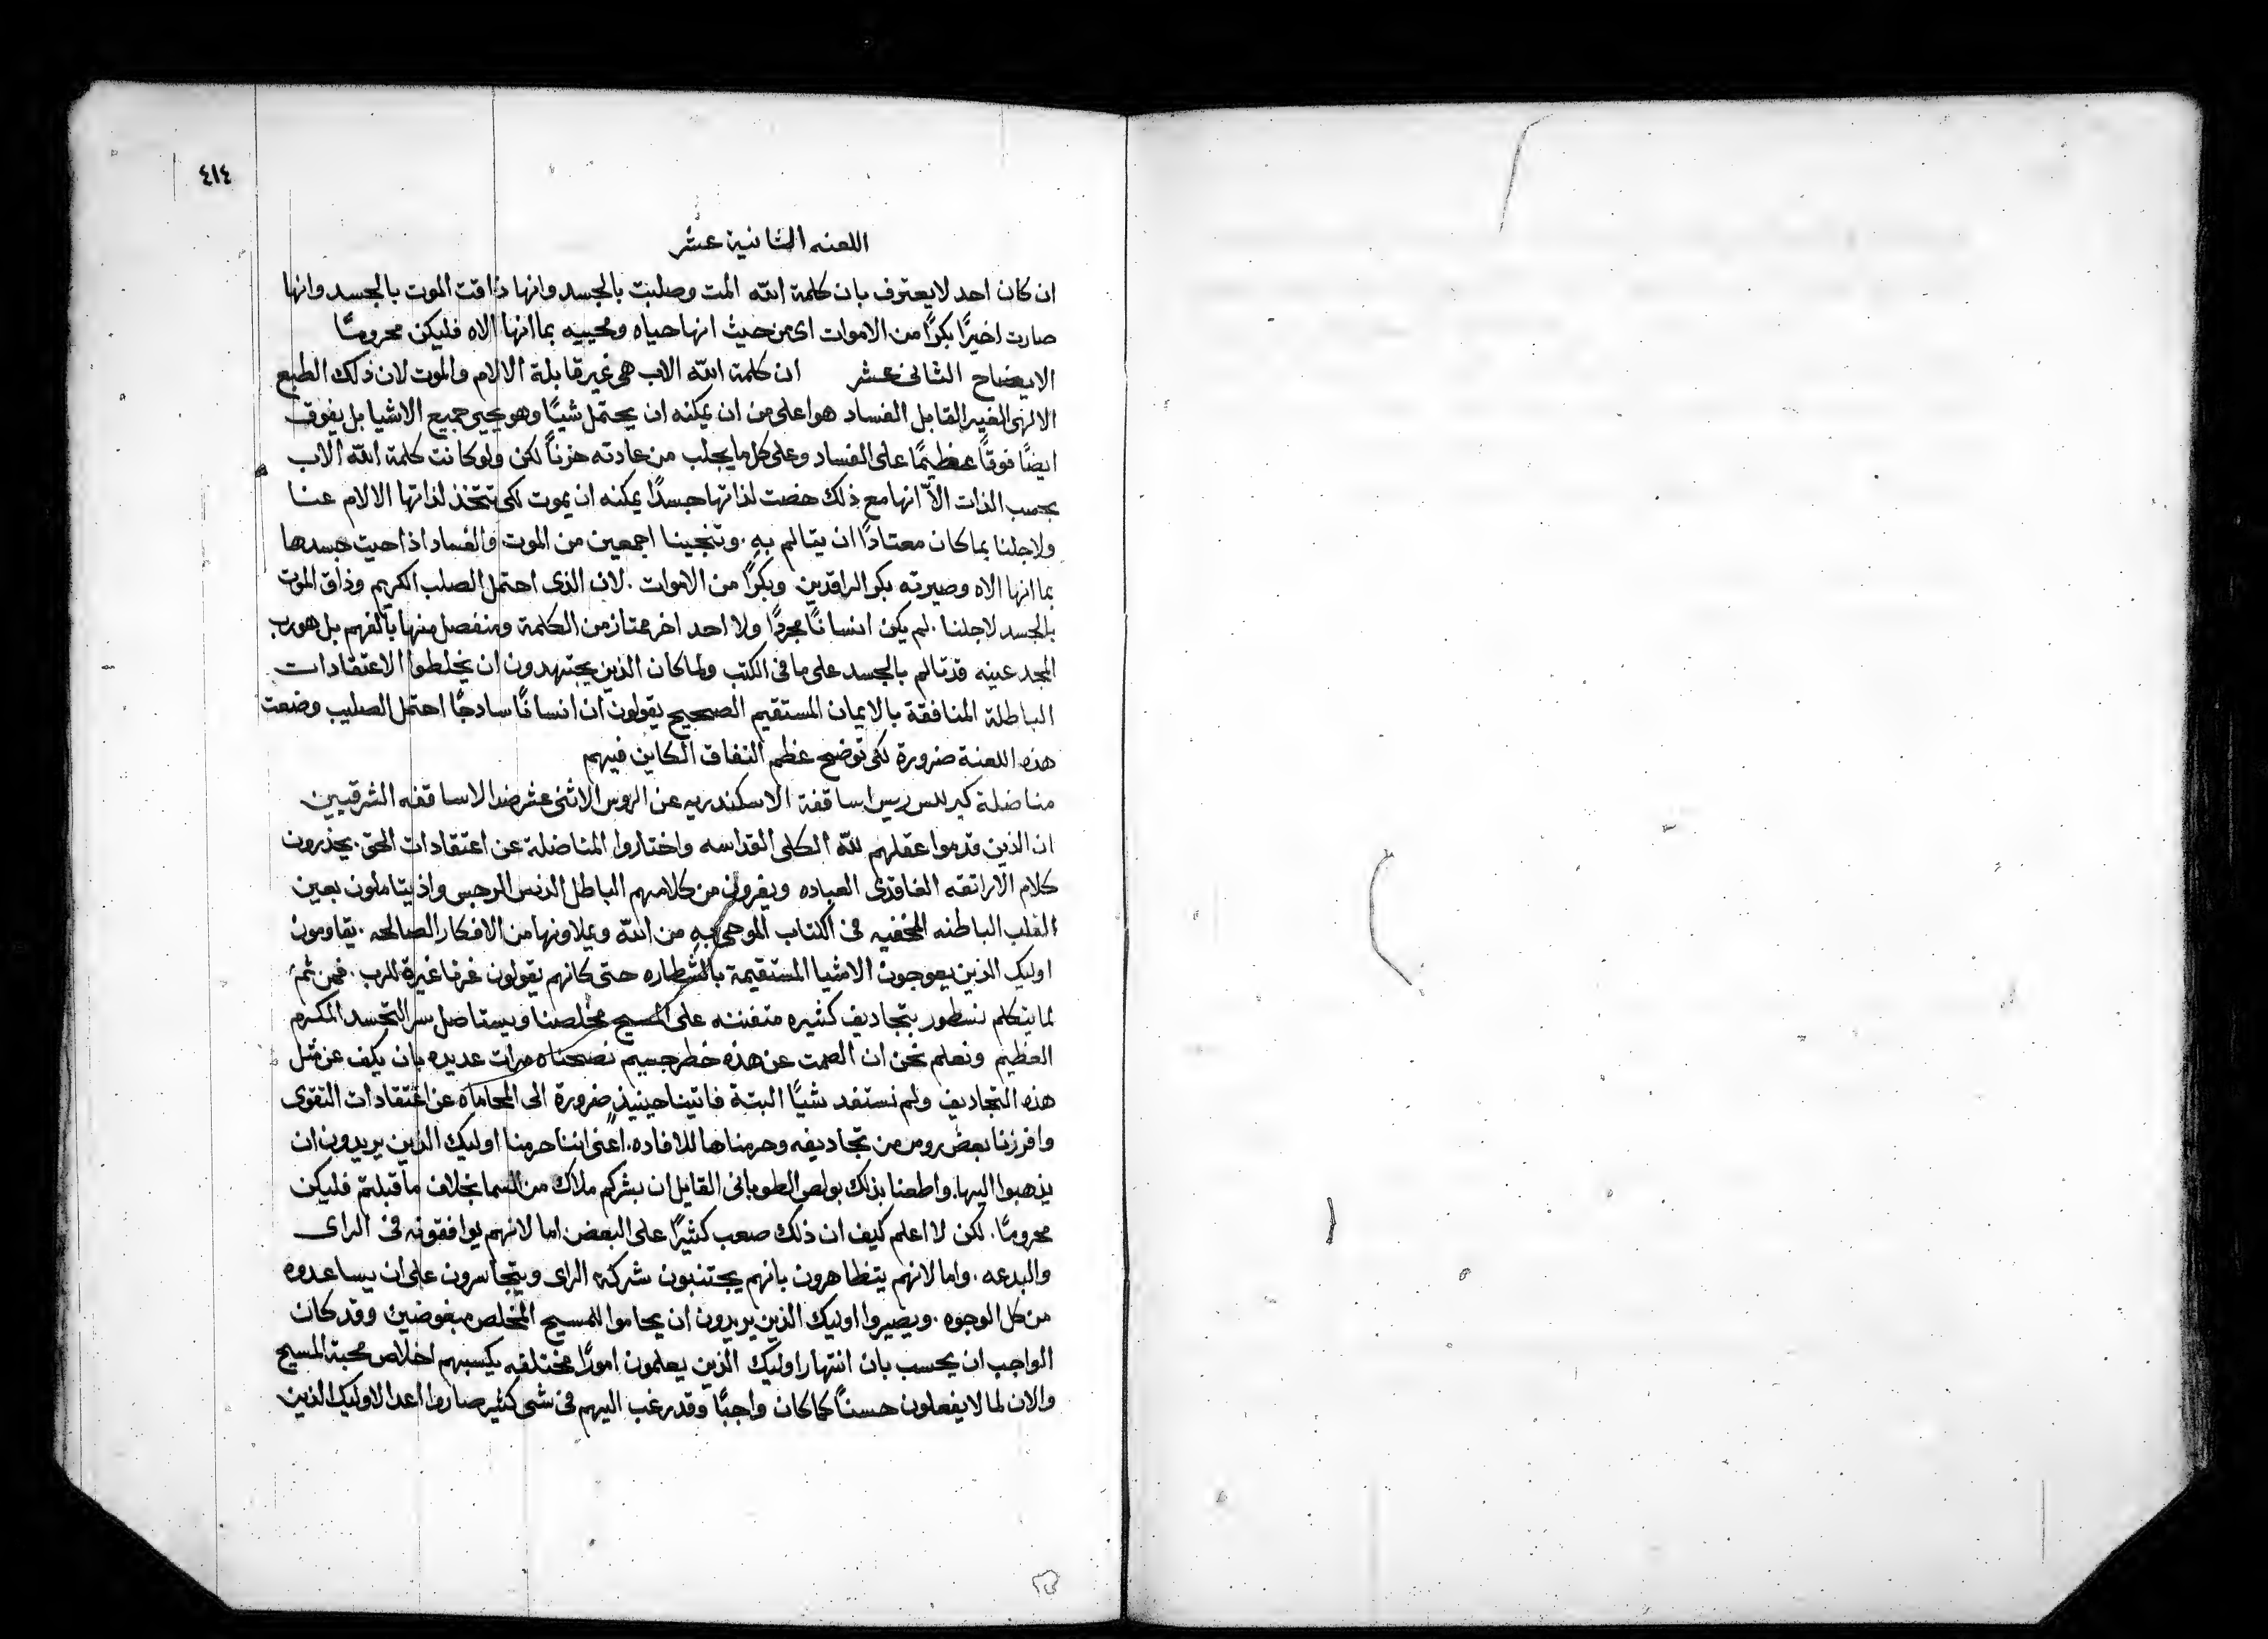 ٤١٤
اللعنه الثانية عشر
ان كان احد لا يعترف بان كلمة الله المت وصلبت بالجسد وانها ذاقت الموت بالجسد وانها
صارت اخيرًا بكرًا من الاموات اى من حيث انها حياه ومحييه بما انها الاه فليكن محرومًا
الايضاح الثانى عشر ان كلمة الله الاب هى غير قابلة الالام والموت لان ذلك الطبع
الالهى الغير القابل الفساد هو اعلى من ان يمكنه ان يحتمل شيًا وهو يحيى جميع الاشيا بل يفوق
ايضًا فوقًا عظيمًا على الفساد وعلى كل ما يجلب من عادته حزنًا لكن ولو كانت كلمة الله الاب
بحسب الذات الاّ انها مع ذلك خصت لذاتها جسدًا يمكنه ان يموت لكى تتخذ لذاتها الالام عنا
ولاجلنا بما كان معتادًا ان يتالم بهِ . وتنجينا اجمعين من الموت والفساد اذ احيت جسدها
بما انها الاه وصيرته بكر الراقدين وبكرًا من الاموات . لان الذى احتمل الصلب الكريم وذاق الموت
بالجسد لاجلنا . لم يكن انسانًا مجردًا ولا احد اخر ممتاز من الكلمة ومنفصل منها بالفهم بل هو رب
المجد عينه قد تالم بالجسد على ما فى الكتب ولما كان الذين يجتهدون ان يخلطوا الاعتقادات
الباطلة المنافقة بالايمان المستقيم الصحيح يقولون ان انسانًا سادجًا احتمل الصليب وضعت
هذه اللعنة ضرورة لكى توضح عظم النفاق الكاين فيهم
مناضلة كيرللس ريس اساقفة الاسكندريه عن الروس الاثنى عشر ضد الاساقفه الشرقيين
ان الذين قدموا عقلهم لله الكلى القداسه واختاروا المناضلة عن اعتقادات الحق . يحذرون
كلام الاراتقه الفاقدى العباده ويفرون من كلامهم الباطل الدنس الرجس واذ يتاملون بعين
القلب الباطنه المخفيه فى الكتاب الموحى بهِ من الله ويملاونها من الافكار الصالحه . يقاومون
اوليك الذين يعوجون الاشيا المستقيمة بالشطاره حتى كانهم يقولون غرنا غيرة للرب . فمن ثمَّ
لما يتكلم نسطور بتجاديف كثيره متفننه على المسيح مخلصنا ويستاصل سر التجسد المكرم
العظيم ونعلم نحن ان الصمت عن هذه خطر جسيم نصحناه مرات عديده بان يكف عن مثل
هذه التجاديف ولم نستفد شيًا البتة فاتينا حينيذٍ ضرورة الى المحاماه عن اعتقادات التقوى
وافرزنا بعض روس من تجاديفه وحرمناها للافاده . اعنى اننا حرمنا اوليك الذين يريدون ان
يذهبوا اليها . واطعنا بذلك بولص الطوبانى القايل ان بشركم ملاك من السما بخلاف ما قبلتم فليكن
محرومًا . لكن لا اعلم كيف ان ذلك صعب كثيرًا على البعض اما لانهم يوافقونه فى الراى
والبدعه . واما لانهم يتظاهرون بانهم يجتنبون شركة الراى ويتجاسرون على ان يساعدوه
من كل الوجوه . ويصيروا اوليك الذين يريدون ان يحاموا للمسيح المخلص مبغوضين وقد كان
الواجب ان يحسب بان انتهار اوليك الذين يعلمون امورًا مختلفه يكسبهم اخلاص محبة المسيح
والان لما لا يفعلون حسنًا كما كان واجبًا وقد رغب اليهم فى شى كثير صاروا اعدا لاوليك الذين